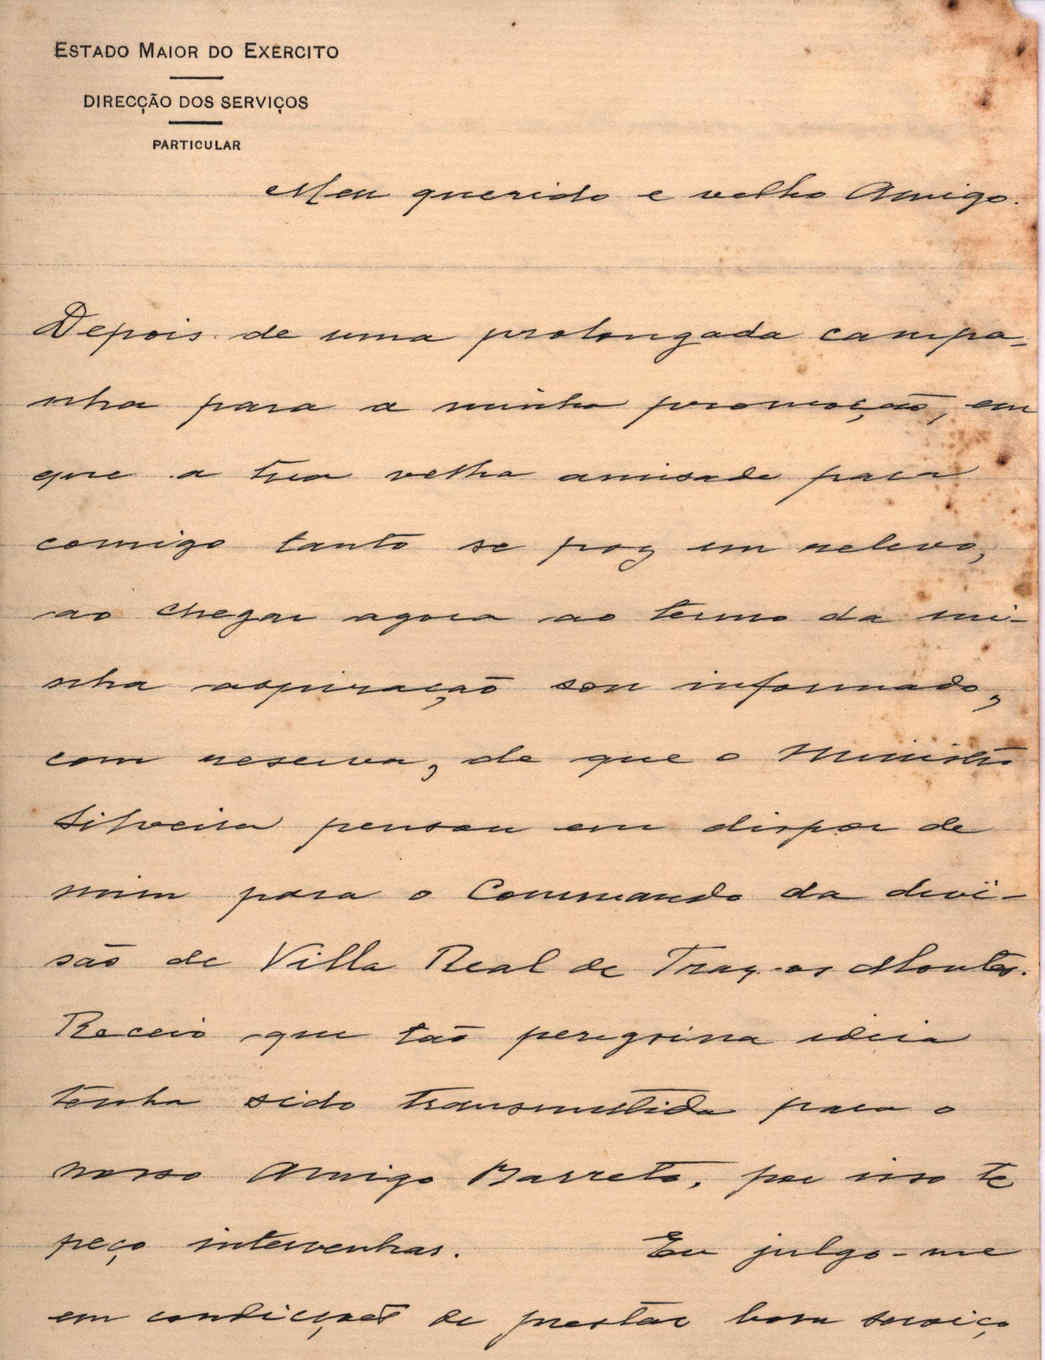 ESTADO MAIOR DO EXÉRCITO
DIRECÇÃO DOS SERVIÇOS
PARTICULAR
Meu querido e velho Amigo.
Depois de uma prolongada campa-
nha para a minha promoção, em
que a tua velha amisade para
comigo tanto se poz em relevo,
ao chegar agora ao termo da mi-
nha aspiração sou informado,
com reserva, de que o Ministro
Silveira pensou em dispor de
mim para o Commando da divi-
são de Villa Real de Traz-os Montes.
Receio que tão peregrina ideia
tenha sido transmittida para o
nosso Amigo Barreto, por isso te
peço intervenhas. Eu julgo-me
em condicções de prestar bom serviço